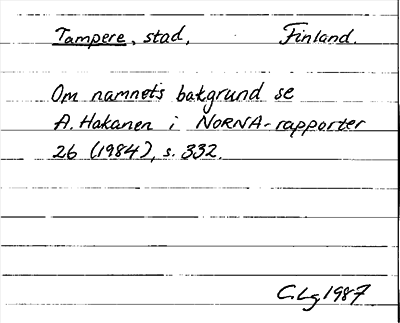 Tampere, stad, Finland.
Om namnets bakgrund se
A. Hakanen i NORNA-rapporter
26 (1984), s. 332.
C.Lg 1987